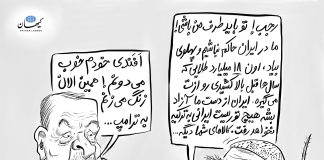 کیهان
رجب! تو باید طرف من باشی!
ما در ایران حاکم نباشیم و پهلوی
بیاد، اون ۱۸ میلیارد طلایی که
سال‌ها قبل بالا کشیدی رو ازت
می‌گیره. ایران از دست ما آزاد
بشه هیچ توریست ایرانی به ترکیه
نخواهد رفت. کالاهای شما دیگه...
اَفَندی خودم خوب
می‌دونم! همین الان
زنگ می‌زنم
به ترامپ...